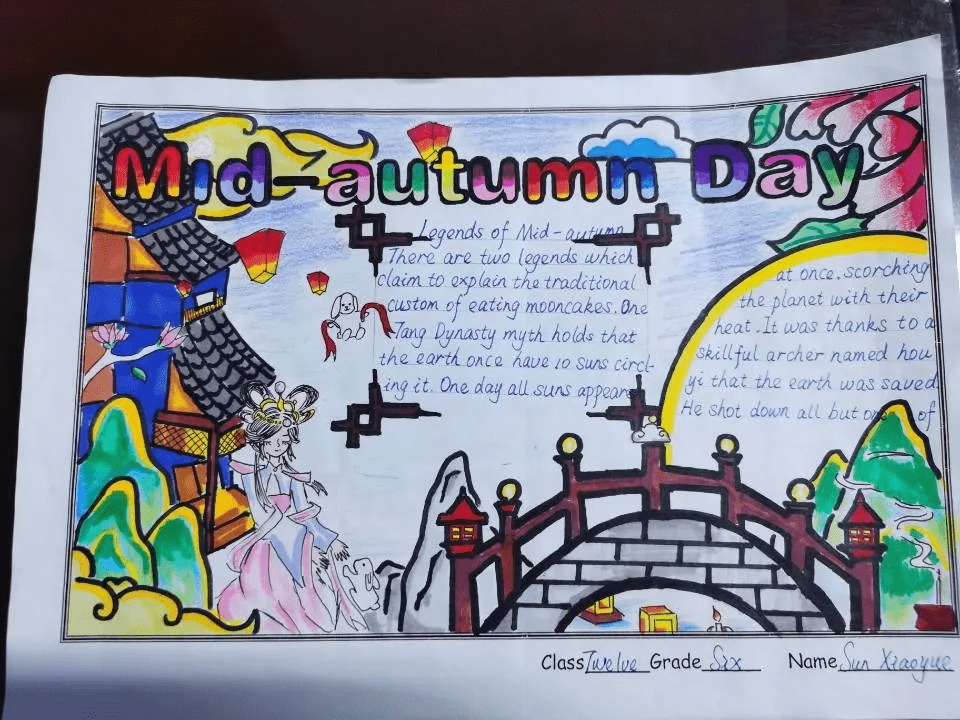 Mid-autumn Day
Legends of Mid-autumn
There are two legends which
claim to explain the traditional
custom of eating mooncakes. One
Tang Dynasty myth holds that
the earth once have 10 suns circl-
ing it. One day all suns appeare
at once, scorching
the planet with their
heat. It was thanks to a
skillful archer named hou
yi that the earth was saved
He shot down all but one of
Class Twelve Grade Six Name Sun Xiaoyue